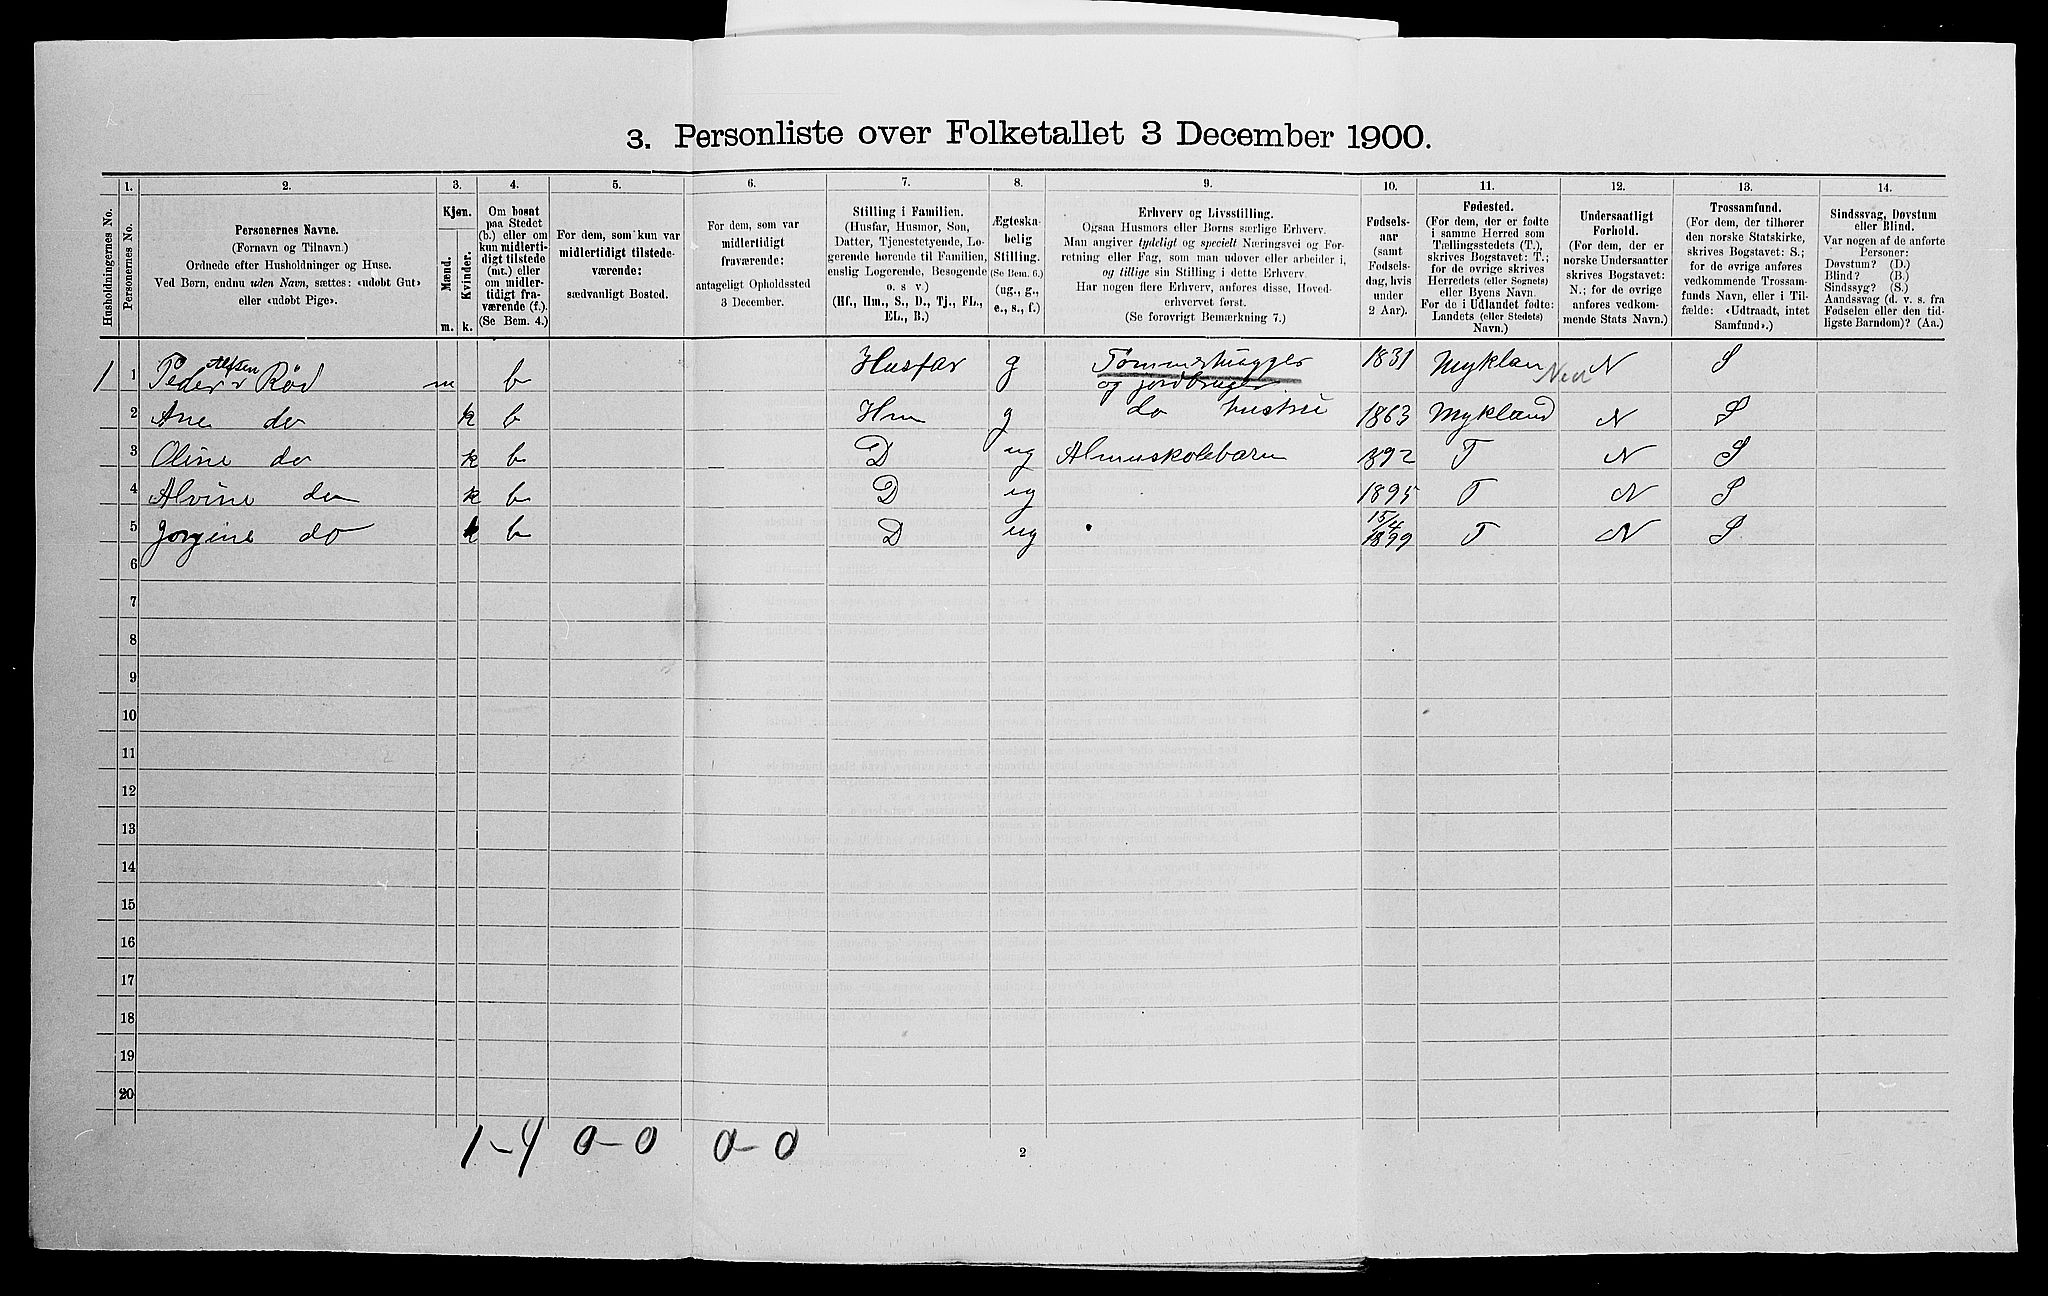 3. Personliste over Folketallet 3 December 1900.
1. 2. 3. 4. 5. 6. 7. 8. 9. 10. 11. 12. 13. 14.
Husholdningernes No.
Personernes No.
Personernes Navne.
(Fornavn og Tilnavn.)
Ordnede efter Husholdninger og Huse.
Ved Børn, endnu uden Navn, sættes: «udøbt Gut»
eller «udøbt Pige».
Kjøn.
Mænd.
Kvinder.
m. k.
Om bosat
paa Stedet
(b.) eller om
kun midlerti-
digt tilstede
(mt.) eller
om midler-
tidigt fra-
værende (f.).
(Se Bem. 4.)
For dem, som kun var
midlertidigt tilstede-
værende:
sædvanligt Bosted.
For dem, som var
midlertidigt
fraværende:
antageligt Opholdssted
3 December.
Stilling i Familien.
(Husfar, Husmor, Søn,
Datter, Tjenestetyende, Lo-
gerende hørende til Familien,
enslig Logerende, Besøgende
o. s v.)
(Hf., Hm., S., D., Tj., FL.,
EL., B.)
Ægteska-
belig
Stilling.
(Se Bem. 6.)
(ug., g.,
e., s., f.)
Erhverv og Livsstilling.
Ogsaa Husmors eller Børns særlige Erhverv.
Man angiver tydeligt og specielt Næringsvei og For-
retning eller Fag, som man udover eller arbeider i,
og tillige sin Stilling i dette Erhverv.
Har nogen flere Erhverv, anføres disse, Hoved-
erhvervet først.
(Se forøvrigt Bemærkning 7.)
Fødsels-
aar
(samt
Fødsels-
dag, hvis
under
2 Aar).
Fødested.
(For dem, der er fødte
i samme Herred som
Tællingsstedets (T.),
skrives Bogstavet: T.;
for de øvrige skrives
Herredets (eller Sognets)
eller Byens Navn.
For de i Udlandet fødte:
Landets (eller Stedets)
Navn.)
Undersaatligt
Forhold.
(For dem, der er
norske Undersaatter
skrives Bogstavet:
N.; for de øvrige
anføres vedkom-
mende Stats Navn.)
Trossamfund.
(For dem, der tilhører
den norske Statskirke,
skrives Bogstavet: S.;
for de øvrige anføres
vedkommende Trossam-
funds Navn, eller i Til-
fælde: «Udtraadt, intet
Samfund».)
Sindssvag, Døvstum
eller Blind.
Var nogen af de anførte
Personer:
Døvstum? (D.)
Blind? (B.)
Sindssyg? (S.)
Aandssvag (d. v. s. fra
Fødselen eller den tid-
ligste Barndom)? (Aa.)
1 1 Peder Rød m b Husfar g Tømmerhugger 1831 Myklan N S
og jordbruger
2 Ane do k b Hm g do hustru 1863 Mykland N S
3 Oline do k b D ug Almuskolebarn 1892 T N S
4 Alvine do k b D ug 1895 T N S
5 Jorgine do k b D ug 15/4 1899 T N S
6
7
8
9
10
11
12
13
14
15
16
17
18
19
20
1–4 0–0 0–0
2